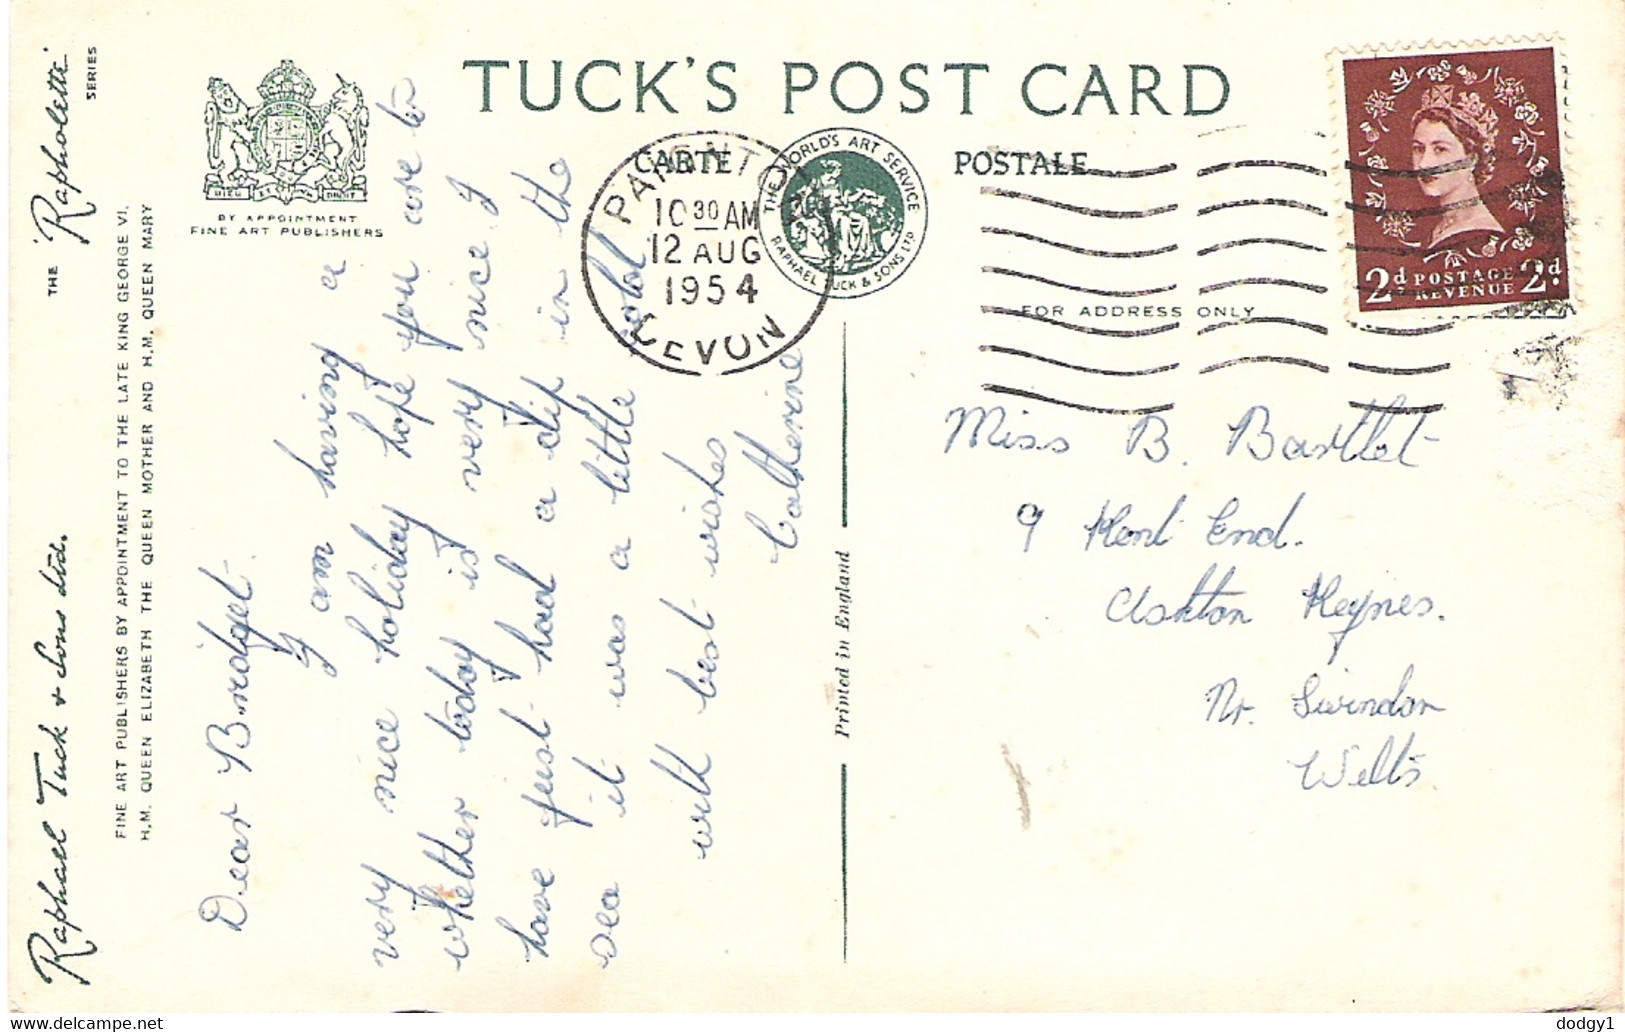 TUCK'S POST CARD
CARTE POSTALE
BY APPOINTMENT
FINE ART PUBLISHERS
THE WORLD'S ART SERVICE
RAPHAEL TUCK & SONS LTD
FOR ADDRESS ONLY
PAIGNTON
10 30 AM
12 AUG
1954
DEVON
2d POSTAGE 2d
REVENUE
Raphael Tuck & Sons Ltd.
THE 'Rapholette' SERIES
FINE ART PUBLISHERS BY APPOINTMENT TO THE LATE KING GEORGE VI,
H.M. QUEEN ELIZABETH THE QUEEN MOTHER AND H.M. QUEEN MARY
DIEU ET MON DROIT
Dear Bridget
I am having a
very nice holiday hope you are to
whether today is very nice I
have just had a dip in the
sea it was a little cold
with best wishes
Catherine
Printed in England
Miss B. Bartlet
9 Kent End.
Ashton Keynes.
Nr. Swindon
Wilts
dodgy1